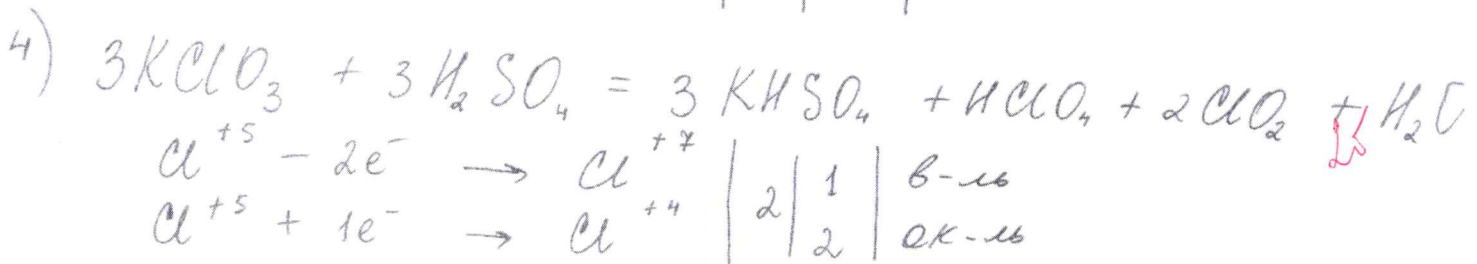 4) 3KClO₃ + 3H₂SO₄ = 3KHSO₄ + HClO₄ + 2ClO₂ + H₂O
Cl⁺⁵ - 2e⁻ → Cl⁺⁷ | 2 | 1 | в-ль
Cl⁺⁵ + 1e⁻ → Cl⁺⁴ | | 2 | ок-ль